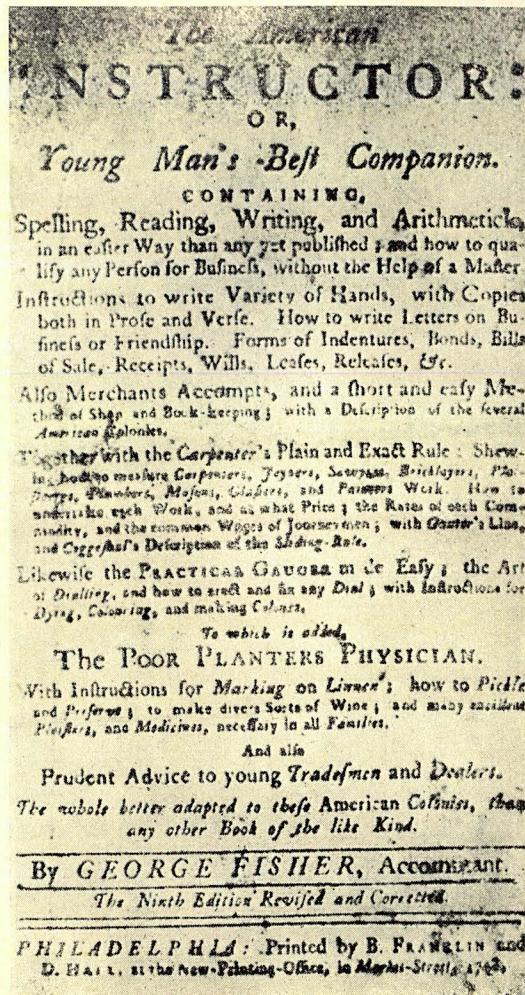 The American
INSTRUCTOR:
OR,
Young Man's Beſt Companion.
CONTAINING,
Spelling, Reading, Writing, and Arithmetick,
in an eaſier Way than any yet publiſhed; and how to qua-
lify any Perſon for Buſineſs, without the Help of a Maſter.
Inſtructions to write Variety of Hands, with Copies
both in Proſe and Verſe. How to write Letters on Bu-
ſineſs or Friendſhip. Forms of Indentures, Bonds, Bills
of Sale, Receipts, Wills, Leaſes, Releaſes, &c.
Alſo Merchants Accompts, and a ſhort and eaſy Me-
thod of Shop and Book-keeping; with a Deſcription of the ſeveral
American Colonies.
Together with the Carpenter's Plain and Exact Rule: Shew-
ing how to meaſure Carpenters, Joyners, Sawyers, Bricklayers, Plai-
ſterers, Plumbers, Maſons, Glaſiers, and Painters Work. How to
undertake each Work, and at what Price; the Rates of each Com-
modity, and the common Wages of Journeymen; with Gunter's Line,
and Coggeſhal's Deſcription of the Sliding-Rule.
Likewiſe the PRACTICAL GAUGER made Eaſy; the Art
of Dialling, and how to erect and fix any Dial; with Inſtructions for
Dying, Colouring, and making Colours.
To which is added,
The POOR PLANTERS PHYSICIAN.
With Inſtructions for Marking on Linnen; how to Pickle
and Preſerve; to make divers Sorts of Wine; and many excellent
Plaiſters, and Medicines, neceſſary in all Families.
And alſo
Prudent Advice to young Tradeſmen and Dealers.
The whole better adapted to theſe American Colonies, than
any other Book of the like Kind.
By GEORGE FISHER, Accomptant.
The Ninth Edition Reviſed and Corrected.
PHILADELPHIA: Printed by B. FRANKLIN and
D. HALL, at the New-Printing-Office, in Market-Street, 1748.